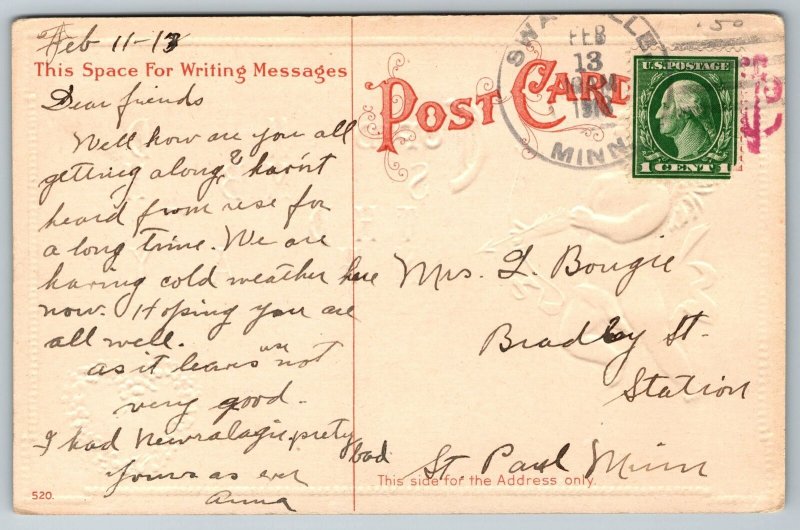 Feb 11-13
This Space For Writing Messages
Dear friends
Well how are you all
getting along? havn't
heard from use for
a long time. We are
having cold weather here
now. Hoping you are
all well.
as it leavs use not
very good.
I had Newralagie pretty bad
yours as ever
Anna
520.
POST CARD
FEB
13
MINN.
U.S. POSTAGE
1 CENT 1
Mrs. L. Bougie
Bradley St.
Station
St. Paul Minn
This side for the Address only.